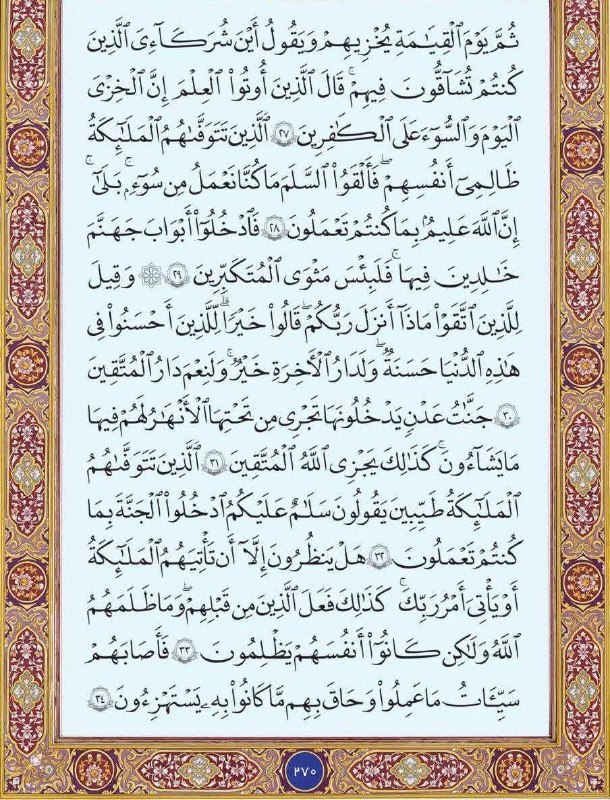 ثُمَّ يَوْمَ ٱلْقِيَٰمَةِ يُخْزِيهِمْ وَيَقُولُ أَيْنَ شُرَكَآءِىَ ٱلَّذِينَ
كُنتُمْ تُشَٰٓقُّونَ فِيهِمْ ۚ قَالَ ٱلَّذِينَ أُوتُوا۟ ٱلْعِلْمَ إِنَّ ٱلْخِزْىَ
ٱلْيَوْمَ وَٱلسُّوٓءَ عَلَى ٱلْكَٰفِرِينَ ٢٧ ٱلَّذِينَ تَتَوَفَّىٰهُمُ ٱلْمَلَٰٓئِكَةُ
ظَالِمِىٓ أَنفُسِهِمْ ۖ فَأَلْقَوُا۟ ٱلسَّلَمَ مَا كُنَّا نَعْمَلُ مِن سُوٓءٍۭ ۚ بَلَىٰٓ ۚ
إِنَّ ٱللَّهَ عَلِيمٌۢ بِمَا كُنتُمْ تَعْمَلُونَ ٢٨ فَٱدْخُلُوٓا۟ أَبْوَٰبَ جَهَنَّمَ
خَٰلِدِينَ فِيهَا ۖ فَلَبِئْسَ مَثْوَى ٱلْمُتَكَبِّرِينَ ٢٩ ۞ وَقِيلَ
لِلَّذِينَ ٱتَّقَوْا۟ مَاذَآ أَنزَلَ رَبُّكُمْ ۚ قَالُوا۟ خَيْرًا ۗ لِّلَّذِينَ أَحْسَنُوا۟ فِى
هَٰذِهِ ٱلدُّنْيَا حَسَنَةٌ ۚ وَلَدَارُ ٱلْءَاخِرَةِ خَيْرٌ ۚ وَلَنِعْمَ دَارُ ٱلْمُتَّقِينَ
٣٠ جَنَّٰتُ عَدْنٍ يَدْخُلُونَهَا تَجْرِى مِن تَحْتِهَا ٱلْأَنْهَٰرُ ۖ لَهُمْ فِيهَا
مَا يَشَآءُونَ ۚ كَذَٰلِكَ يَجْزِى ٱللَّهُ ٱلْمُتَّقِينَ ٣١ ٱلَّذِينَ تَتَوَفَّىٰهُمُ
ٱلْمَلَٰٓئِكَةُ طَيِّبِينَ ۙ يَقُولُونَ سَلَٰمٌ عَلَيْكُمُ ٱدْخُلُوا۟ ٱلْجَنَّةَ بِمَا
كُنتُمْ تَعْمَلُونَ ٣٢ هَلْ يَنظُرُونَ إِلَّآ أَن تَأْتِيَهُمُ ٱلْمَلَٰٓئِكَةُ
أَوْ يَأْتِىَ أَمْرُ رَبِّكَ ۚ كَذَٰلِكَ فَعَلَ ٱلَّذِينَ مِن قَبْلِهِمْ ۚ وَمَا ظَلَمَهُمُ
ٱللَّهُ وَلَٰكِن كَانُوٓا۟ أَنفُسَهُمْ يَظْلِمُونَ ٣٣ فَأَصَابَهُمْ
سَيِّـَٔاتُ مَا عَمِلُوا۟ وَحَاقَ بِهِم مَّا كَانُوا۟ بِهِۦ يَسْتَهْزِءُونَ ٣٤
٢٧٠